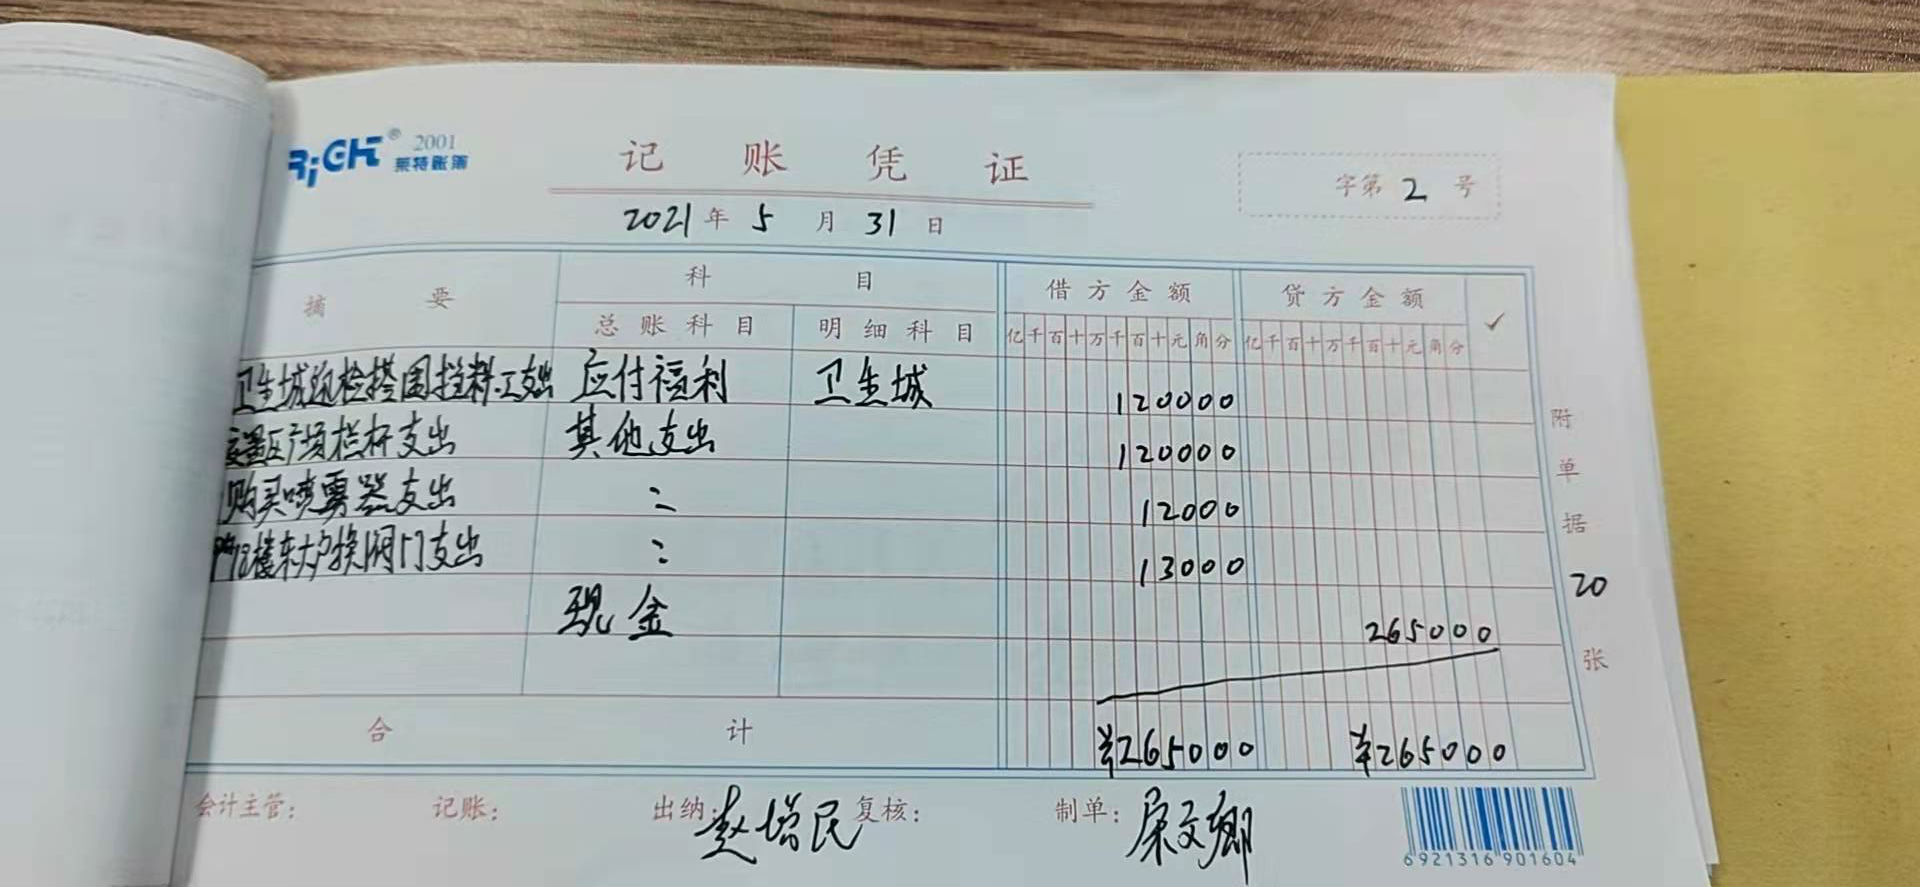 RiGHT® 2001
莱特账簿
记账凭证
字第 2 号
2021 年 5 月 31 日
摘要 科目 借方金额 贷方金额 ✓
总账科目 明细科目 亿千百十万千百十元角分 亿千百十万千百十元角分
卫生城迎检搭围挡料.工支出 应付福利 卫生城 120000
安置区广场栏杆支出 其他支出 120000
购买喷雾器支出 〃 12000
楼东大户换阀门支出 〃 13000
现金 265000
合计 ¥265000 ¥265000
附单据 20 张
会计主管: 记账: 出纳: 赵增民 复核: 制单:
6 921316 901604